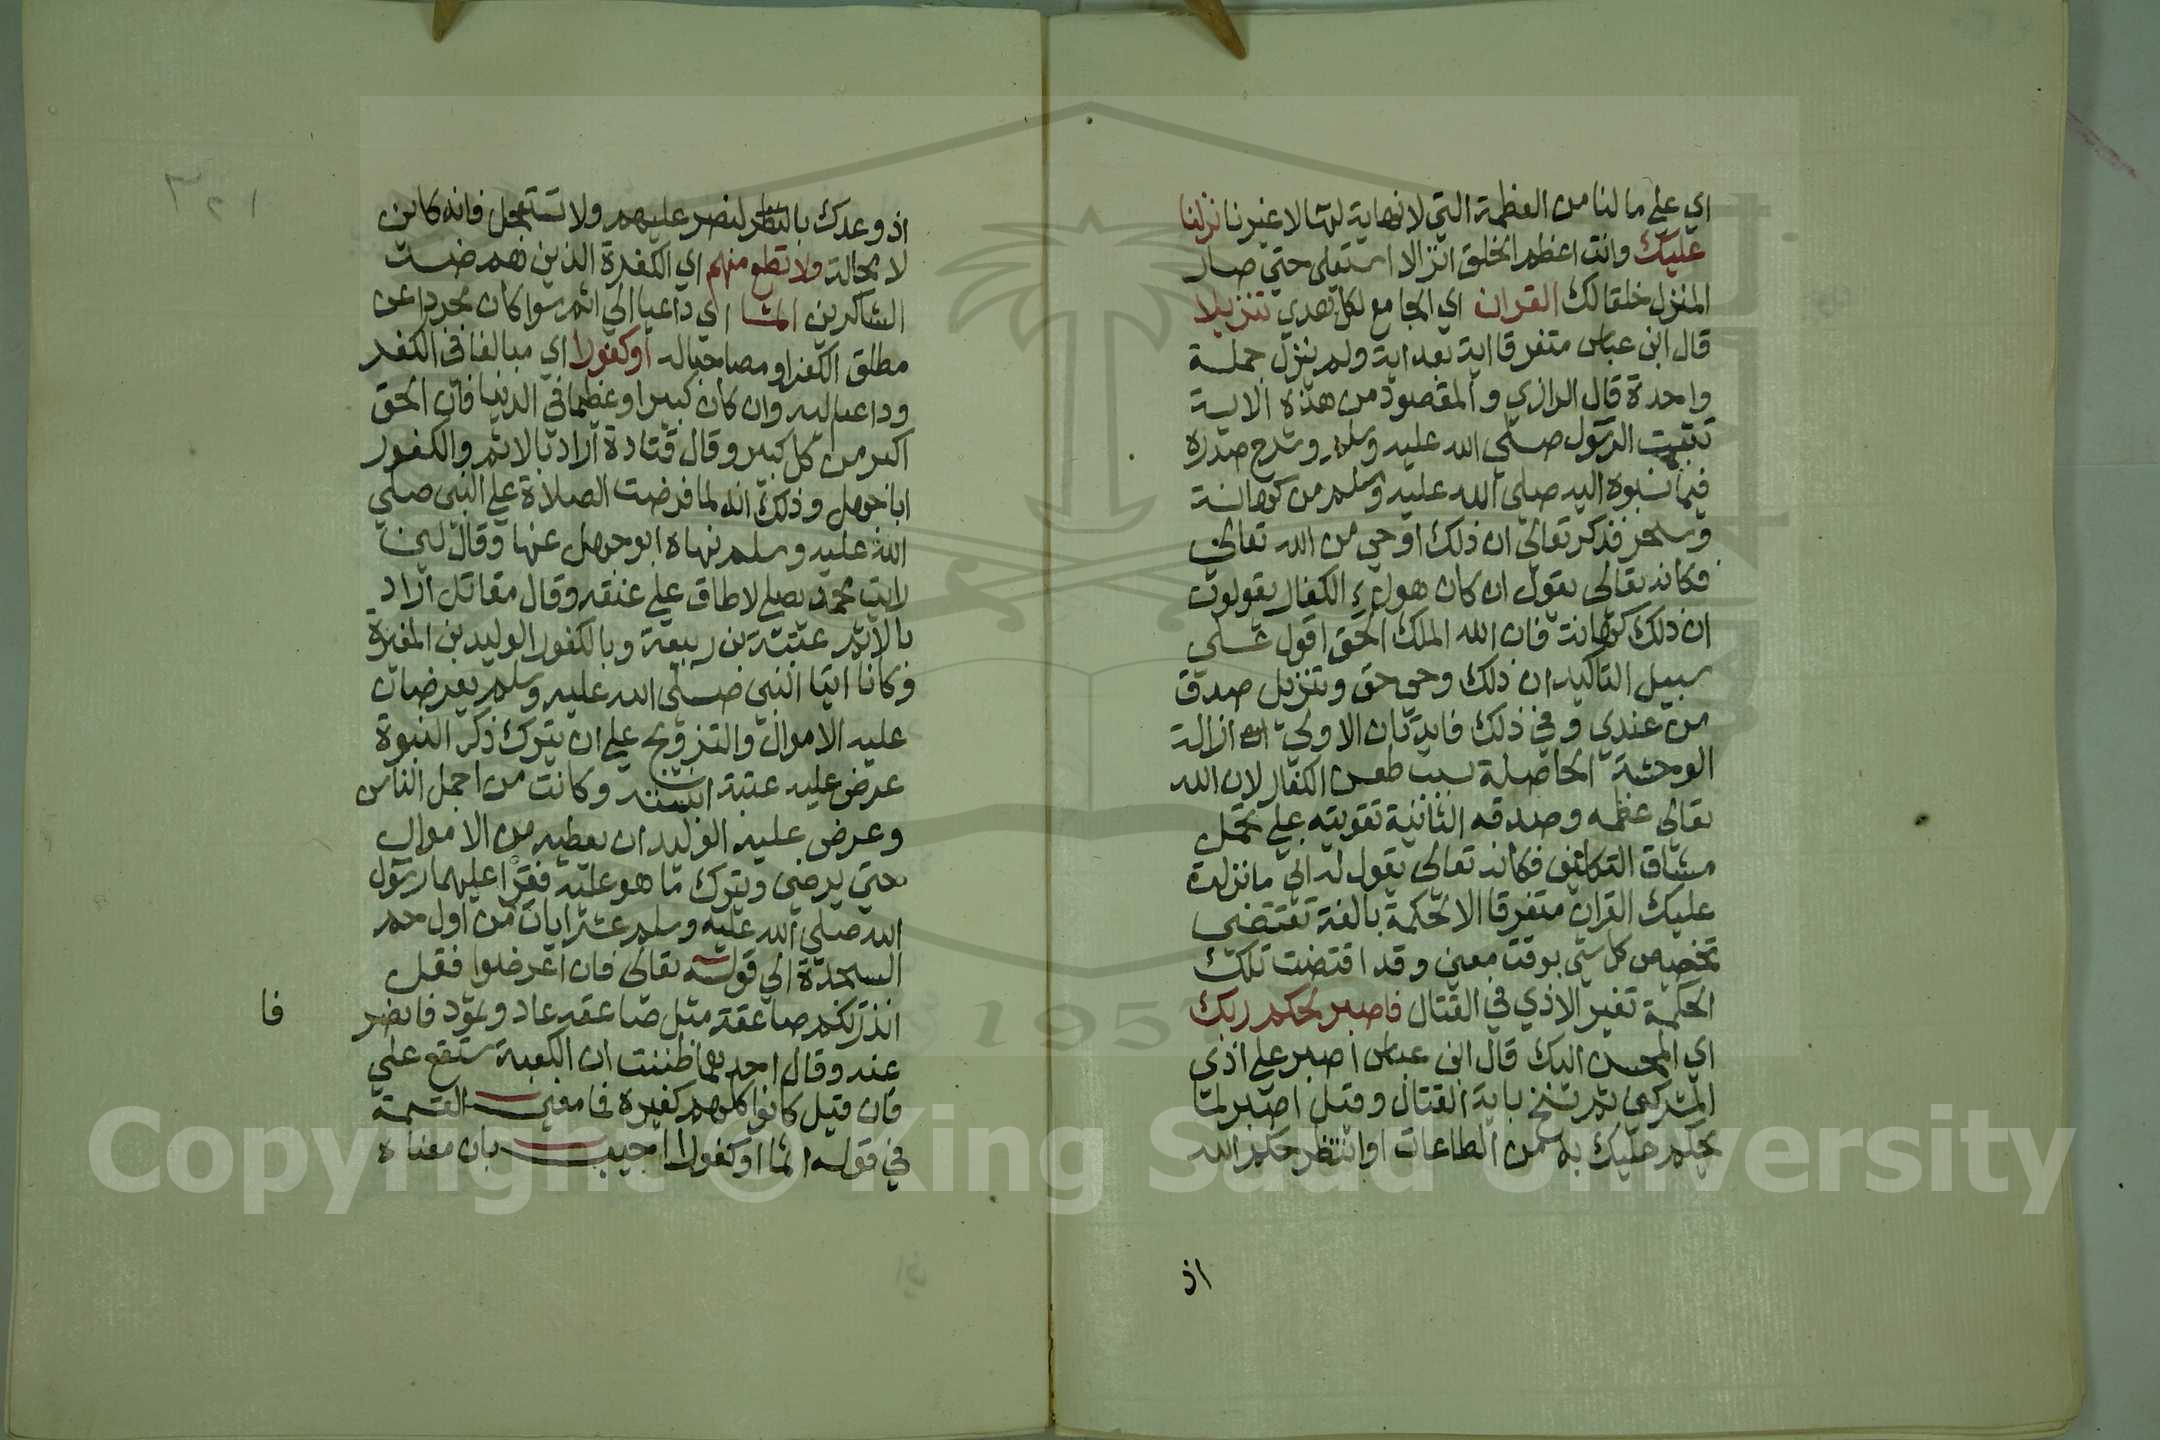 اي علي ما لنا من العظمة التي لا نهاية لها لا غيرنا نزلنا
عليك وانت اعظم الخلق انزالا استعلي حتي صار
المنزل خلقا لك القران اي الجامع لكل هدي تنزيلا
قال ابن عباس متفرقا اية بعد اية ولم ينزل جملة
واحدة قال الرازي والمقصود من هذه الاية
تثبيت الرسول صلي الله عليه وسلم وشرح صدره
فيما نسبوه اليه صلي الله عليه وسلم من كهانة
وسحر فذكر تعالي ان ذلك اوحي من الله تعالي
فكانه تعالي يقول ان كان هولاء الكفار يقولون
ان ذلك كهانة فان الله الملك الحق اقول علي
سبيل التاكيد ان ذلك وحي حق وتنزيل صدق
من عندي وفي ذلك فايدتان الاولي ازالة
الوحشة الحاصلة بسبب طعن الكفار لان الله
تعالي عظمه وصدقه الثانية تقويته علي تحمل
مشاق التكليف فكانه تعالي يقول له اني ما نزلت
عليك القران متفرقا الا لحكمة بالغة تقتضي
تخصيص كل شي بوقت معين وقد اقتضت تلك
الحكمة تغير الاذي في القتال فاصبر لحكم ربك
اي المحسن اليك قال ابن عباس اصبر علي اذي
المشركين ثم نسخ باية القتال وقيل اصبر لما
يحكم عليك به من الطاعات او انتظر حكم الله
اذ
اذ وعدك بالنصر عليهم ولا تستعجل فانه كاين
لا محالة ولا تطع منهم اي الكفرة الذين هم ضد
الشاكرين اثما اي داعيا الي اثم سوا كان مجردا عن
مطلق الكفر او مصاحبا له او كفورا اي مبالغا في الكفر
وداعيا اليه وان كان كبيرا وعظيما في الدنيا فان الحق
اكبر من كل كبير وقال قتادة اراد بالاثم والكفور
ابا جهل وذلك انه لما فرضت الصلاة علي النبي صلي
الله عليه وسلم نهاه ابو جهل عنها وقال لين
رايت محمد يصلي لاطان علي عنقه وقال مقاتل اراد
بالاثم عتبة بن ربيعة وبالكفور الوليد بن المغيرة
وكانا اتيا النبي صلي الله عليه وسلم يعرضان
عليه الاموال والتزويج علي ان يترك ذكر النبوة
عرض عليه عتبة ابنته وكانت من اجمل الناس
وعرض عليه الوليد ان يعطيه من الاموال
حتي يرضي ويترك ما هو عليه فقرا عليهما رسول
الله صلي الله عليه وسلم عشر ايات من اول حم
السجدة الي قوله تعالي فان اعرضوا فقل
انذرتكم صاعقة مثل صاعقة عاد وثمود فانصر
عنه وقال احدهما ظننت ان الكعبة ستقع علي
فان قيل كانوا كلهم كفرة فما معني القسمة
في قوله اثما او كفورا اجيب بان معناه
فا
Copyright © King Saud University